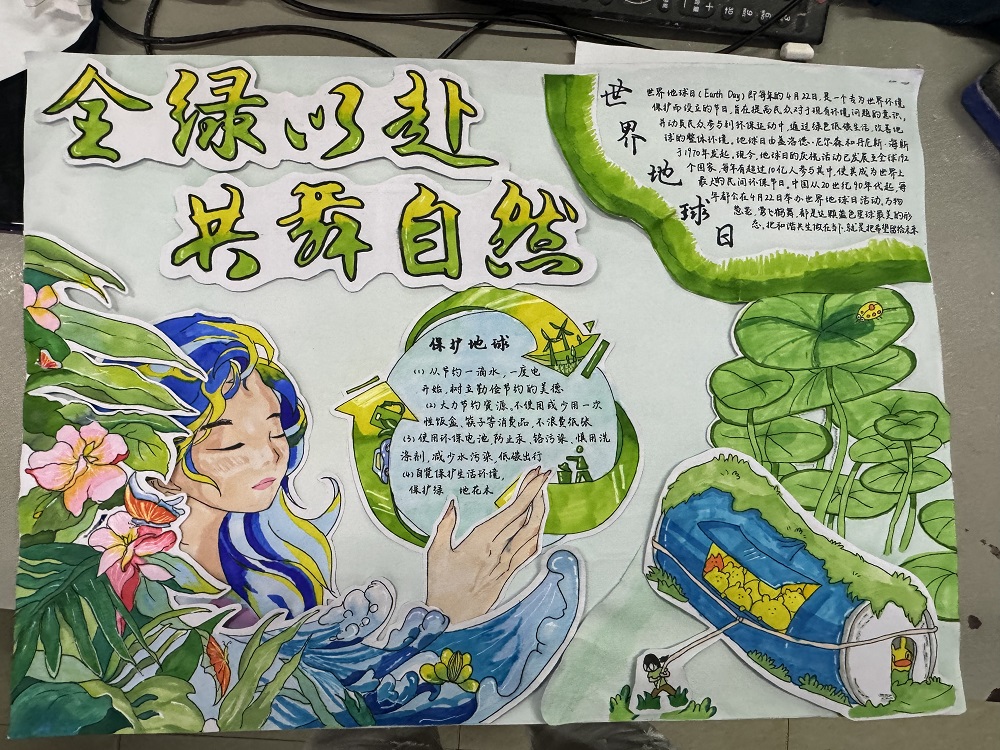 全绿以赴
共舞自然
世界地球日
世界地球日(Earth Day)即每年的4月22日,是一个专为世界环境
保护而设立的节日,旨在提高民众对于现有环境问题的意识,
并动员民众参与到环保运动中,通过绿色低碳生活,改善地
球的整体环境。地球日由盖洛德·尼尔森和丹尼斯·海斯
于1970年发起。现今,地球日的庆祝活动已发展至全球192
个国家,每年有超过10亿人参与其中,使其成为世界上
最大的民间环保节日。中国从20世纪90年代起,每
年都会在4月22日举办世界地球日活动。万物
葱茏,莺飞鹤舞,都是这颗蓝色星球最美的形
态,把和谐共生做在当下,就是把希望留给未来
保护地球
(1)从节约一滴水,一度电
开始,树立勤俭节约的美德
(2)大力节约资源、不使用或少用一次
性饭盒、筷子等消费品,不浪费纸张
(3)使用环保电池,防止汞、铬污染,慎用洗
涤剂,减少水污染,低碳出行
(4)自觉保护生活环境,
保护绿 地花木